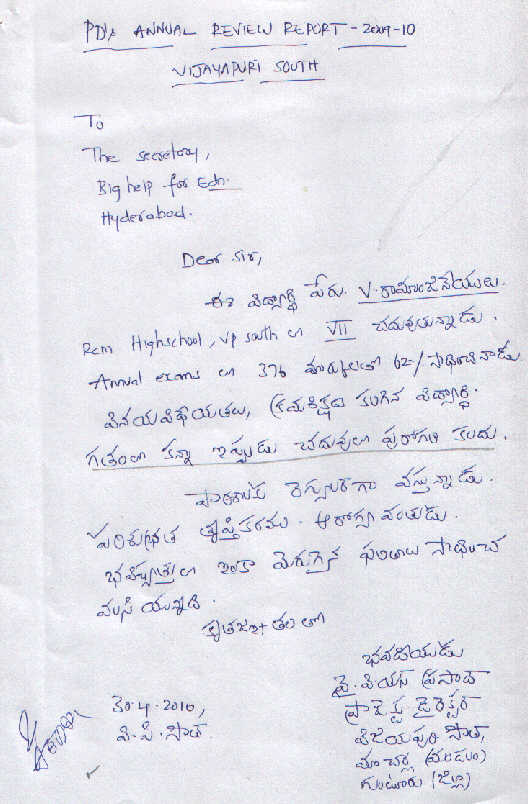 PDJ ANNUAL REVIEW REPORT - 2009-10
VIJAYAPURI SOUTH
To
The secretary,
Big help for Edn.
Hyderabad.
Dear sir,
ఈ విద్యార్థి పేరు. V. రామాంజనేయులు.
Rcm Highschool, vp south లో VII చదువుతున్నాడు.
Annual exams లో 376 మార్కులతో 62% సాధించినాడు
వినయవిధేయతలు, క్రమశిక్షణ కలిగిన విద్యార్థి.
గతంలో కన్నా ఇప్పుడు చదువులో పురోగతి కలదు.
పాఠశాలకు రెగ్యులర్‌గా వస్తున్నాడు.
పరిశుభ్రత తృప్తికరము. ఆరోగ్య వంతుడు.
భవిష్యత్తులో ఇంకా మెరుగైన ఫలితాలు సాధించ
వలసి యున్నది.
కృతజ్ఞతలతో
భవదీయుడు
వై. పియస్ ప్రసాద్
ప్రాజెక్టు డైరెక్టర్
విజయపురి సౌత్,
మాచర్ల (మండలం)
గుంటూరు (జిల్లా)
30.4.2010,
వి. పి. సౌత్.